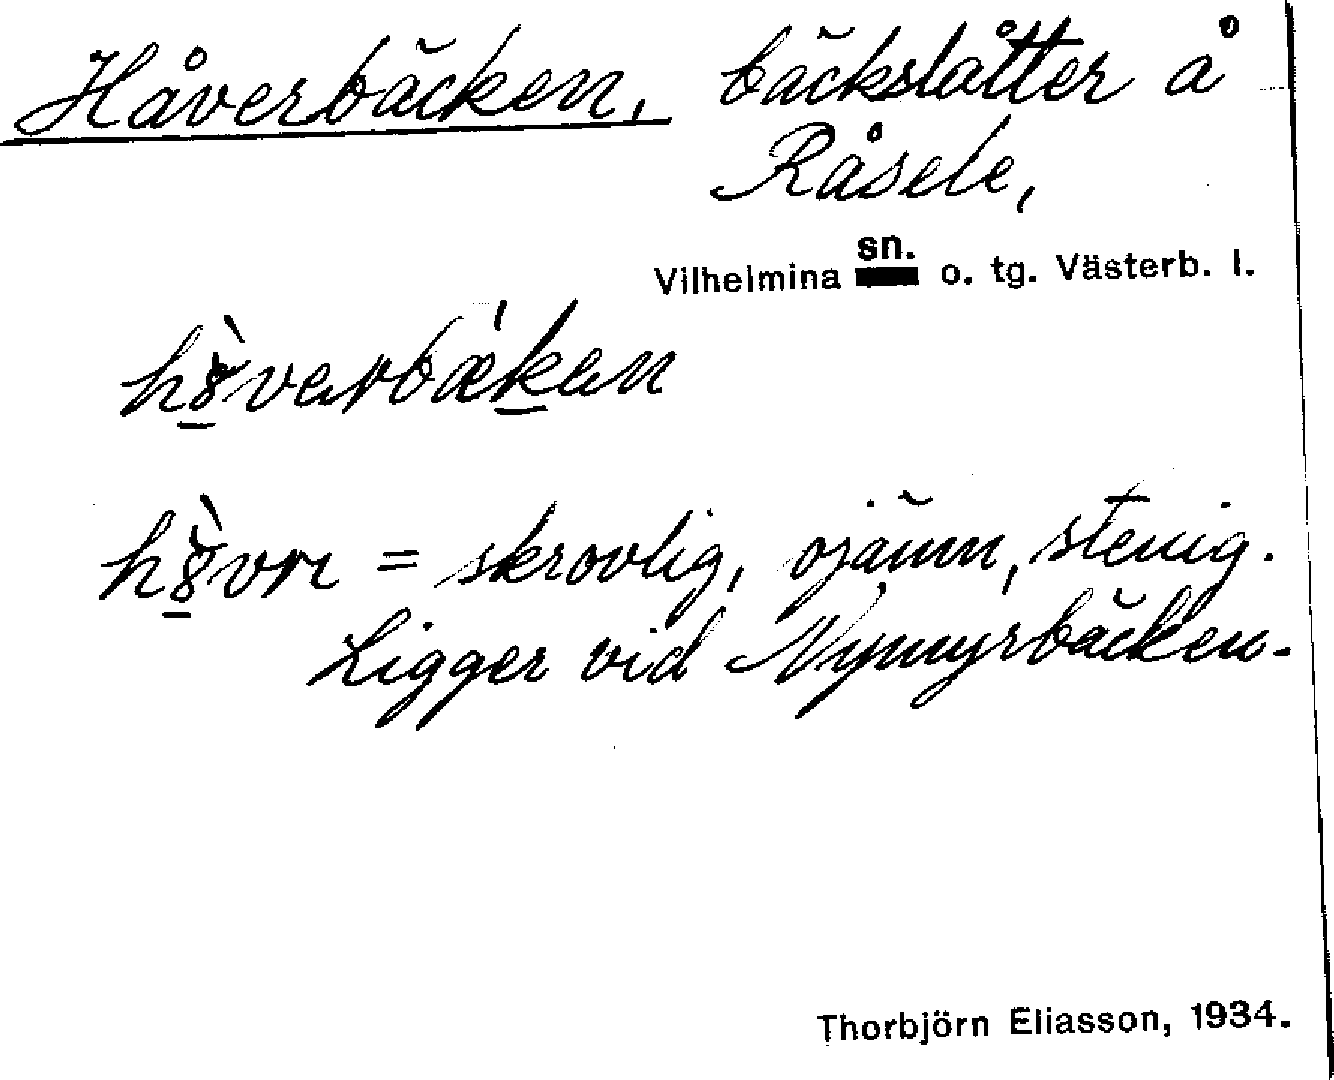 Håverbäcken, bäckslåtter å
Råsele,
Vilhelmina sn. o. tg. Västerb. l.
= skrovlig, ojämn, stenig.
Ligger vid Nymyrbäcken.
Thorbjörn Eliasson, 1934.